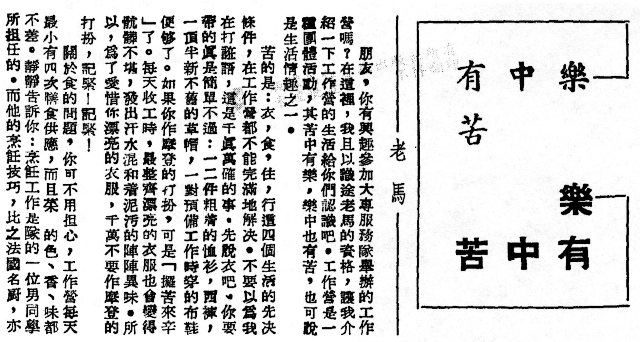 樂中有苦
苦中有樂
老馬
朋友，你有興趣參加大專服務隊舉辦的工作
營嗎？在這裡，我且以識途老馬的資格，讓我介
紹一下工作營的生活給你們認識吧。工作營是一
種團體活動，其苦中有樂，樂中也有苦，也可說
是生活情趣之一。
苦的是：衣，食，住，行這四個生活的先決
條件，在工作營都不能完滿地解決。不要以爲我
在打誑語，這是千眞萬確的事。先說衣吧。你要
帶的眞是簡單不過：一二件粗着的恤衫，西褲，
一頂半新不舊的草帽，一對預備工作時穿的布鞋
便够了。如果你作摩登的打扮，可是「攞苦來辛
」了。每天收工時，最整齊漂亮的衣服也會變得
骯髒不堪，發出汗水混和着泥污的陣陣異味。所
以，爲了愛惜你漂亮的衣服，千萬不要作摩登的
打扮，記緊！記緊！
關於食的問題，你可不用担心，工作營每天
最小有四次膳食供應，而且菜 的色、香、味都
不差。靜靜告訴你：烹飪工作是隊的一位男同學
所担任的。而他的烹飪技巧，比之法國名厨，亦